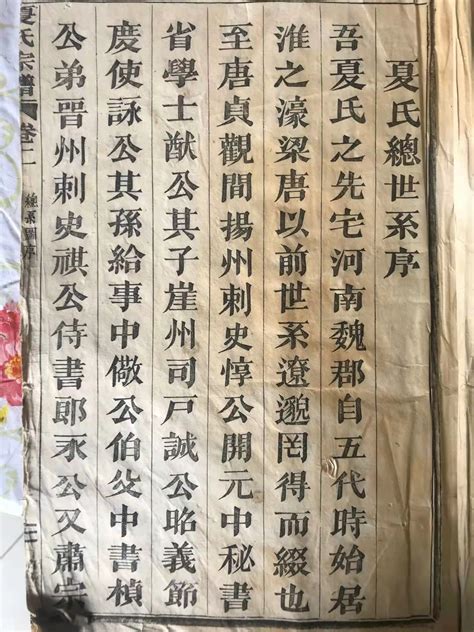 夏氏總世系序
吾夏氏之先宅河南魏郡自五代時始居
淮之濠梁唐以前世系遼邈罔得而綴也
至唐貞觀間揚州刺史惇公開元中秘書
省學士猷公其子崖州司戸誠公昭義節
度使詠公其孫給事中儆公伯父中書楨
公弟晋州刺史祺公侍書郎永公又肅宗
夏氏宗譜 卷二 總系圖序 二